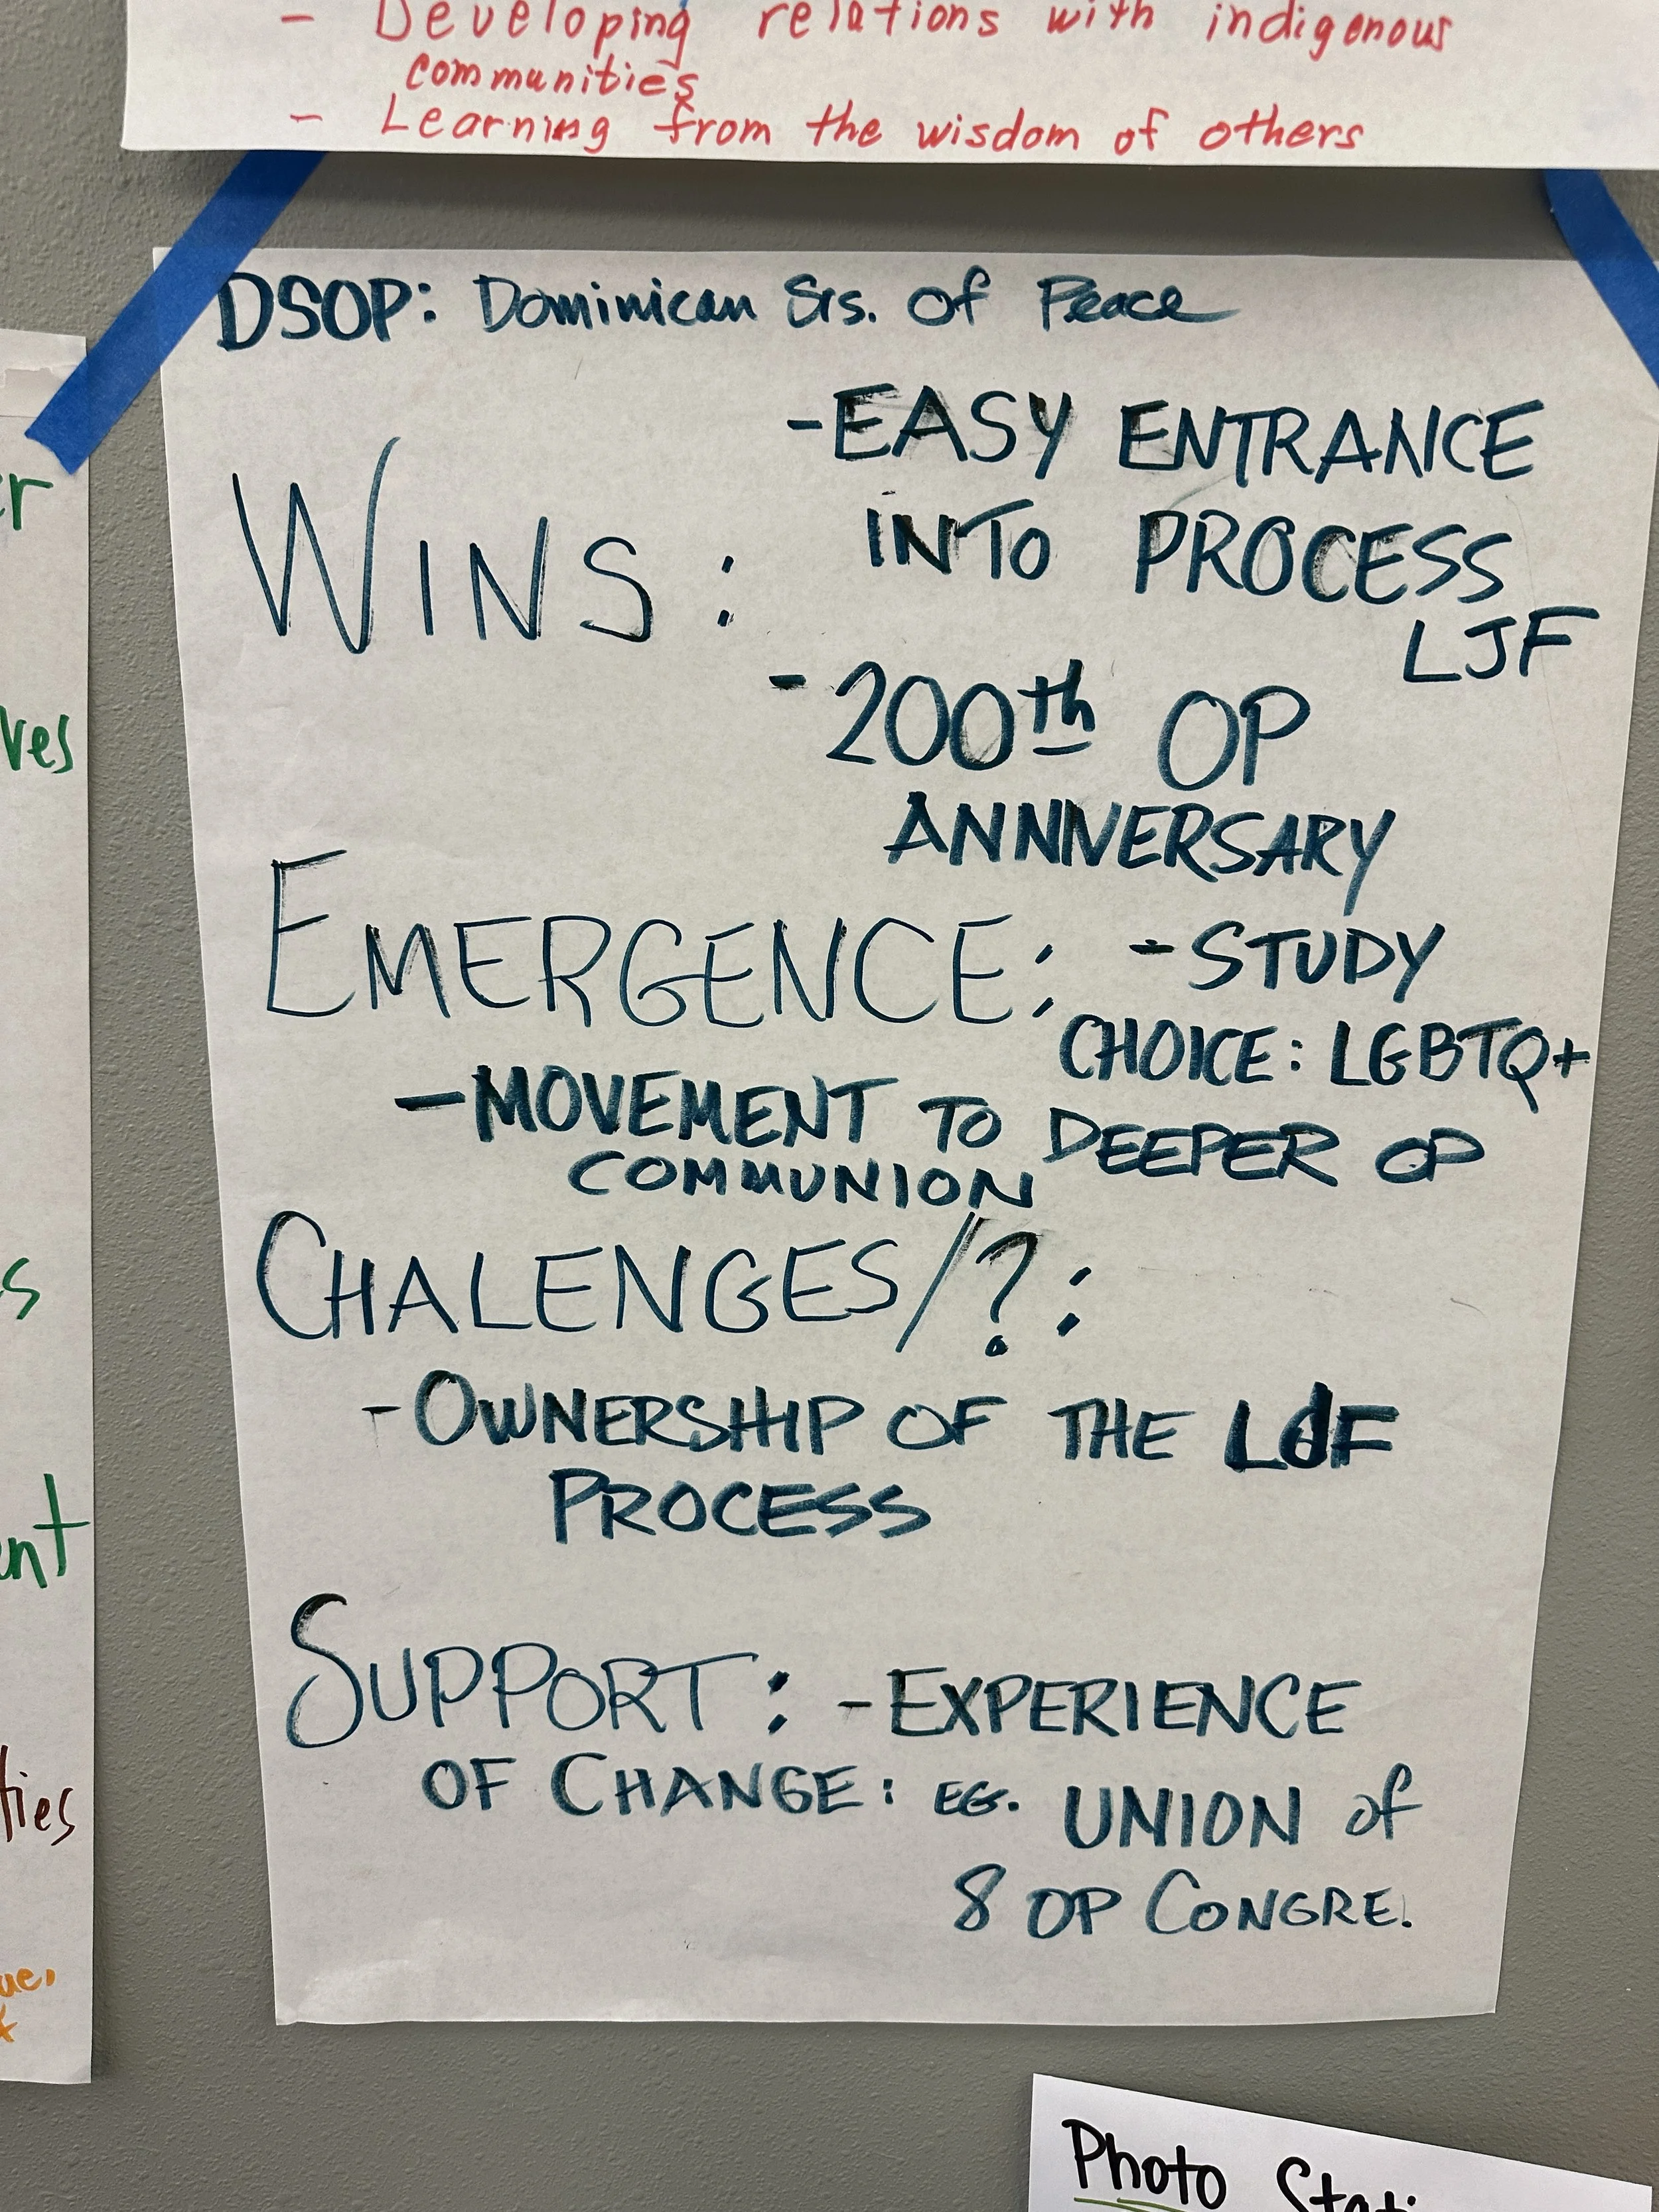 - Developing relations with indigenous
communities
- Learning from the wisdom of others
DSOP: Dominican Srs. Of Peace
WINS:
- EASY ENTRANCE
INTO PROCESS
LJF
- 200th OP
ANNIVERSARY
EMERGENCE: - STUDY
CHOICE: LGBTQ+
- MOVEMENT TO DEEPER OP
COMMUNION
CHALENGES/?:
- OWNERSHIP OF THE LJF
PROCESS
SUPPORT: - EXPERIENCE
OF CHANGE: EG. UNION of
8 OP CONGRE.
ves
s
ent
ties
Photo